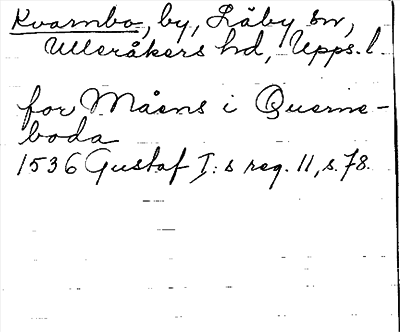 Kvarnbo, by, Läby sn,
Ulleråkers hd, Upps. l.
for Måens i Querne-
boda
1536 Gustaf I:s reg. 11, s. 78.